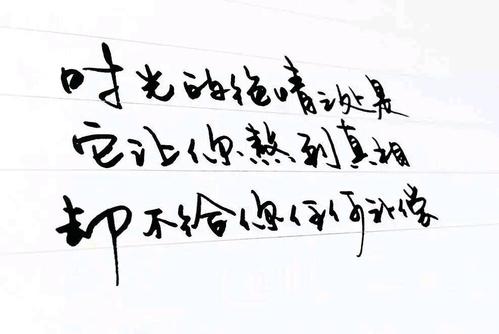 时光的绝情之处是
它让你熬到真相
却不给你任何补偿